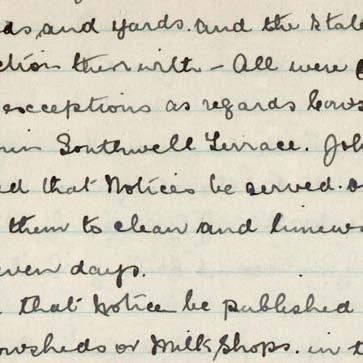 and yards. and the State
therewith – All were
exceptions as regards Cows
in Southwell Terrace. Joh
ed that Notices be served. o
them to clean and limew
even days.
that Notice be published
owsheds or Milk Shops. in t